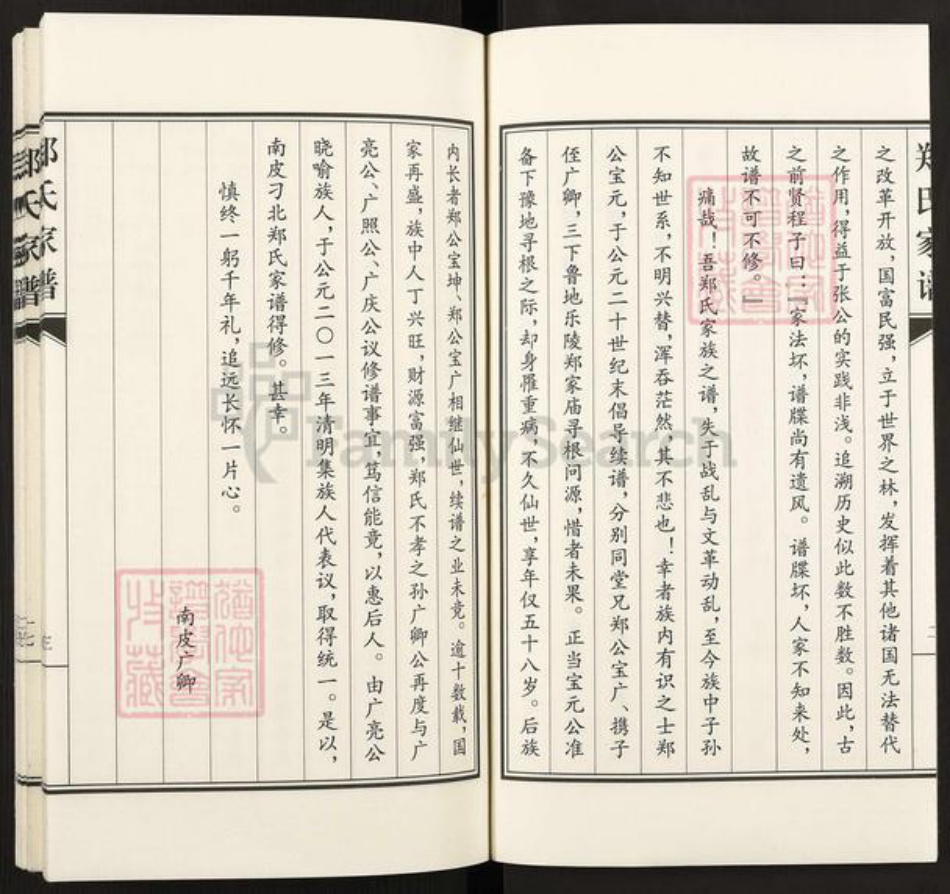 郑氏家谱
之改革开放，国富民强，立于世界之林，发挥着其他诸国无法替代
之作用，得益于张公的实践非浅。追溯历史似此数不胜数。因此，古
之前贤程子曰：『家法坏，谱牒尚有遗风。谱牒坏，人家不知来处，
故谱不可不修。』
痛哉！吾郑氏家族之谱，失于战乱与文革动乱，至今族中子孙
不知世系，不明兴替，浑吞茫然，其不悲也！幸者族内有识之士郑
公宝元，于公元二十世纪末倡导续谱，分别同堂兄郑公宝广、携子
侄广卿，三下鲁地乐陵郑家庙寻根问源，惜者未果。正当宝元公准
备下豫地寻根之际，却身罹重病，不久仙世，享年仅五十八岁。后族
内长者郑公宝坤、郑公宝广相继仙世，续谱之业未竟。逾十数载，国
家再盛，族中人丁兴旺，财源富强，郑氏不孝之孙广卿公再度与广
亮公、广照公、广庆公议修谱事宜，笃信能竟，以惠后人。由广亮公
晓喻族人，于公元二〇一三年清明集族人代表议，取得统一。是以，
南皮刁北郑氏家谱得修。甚幸。
慎终一躬千年礼，追远长怀一片心。
南皮广卿
郑氏家谱
FamilySearch